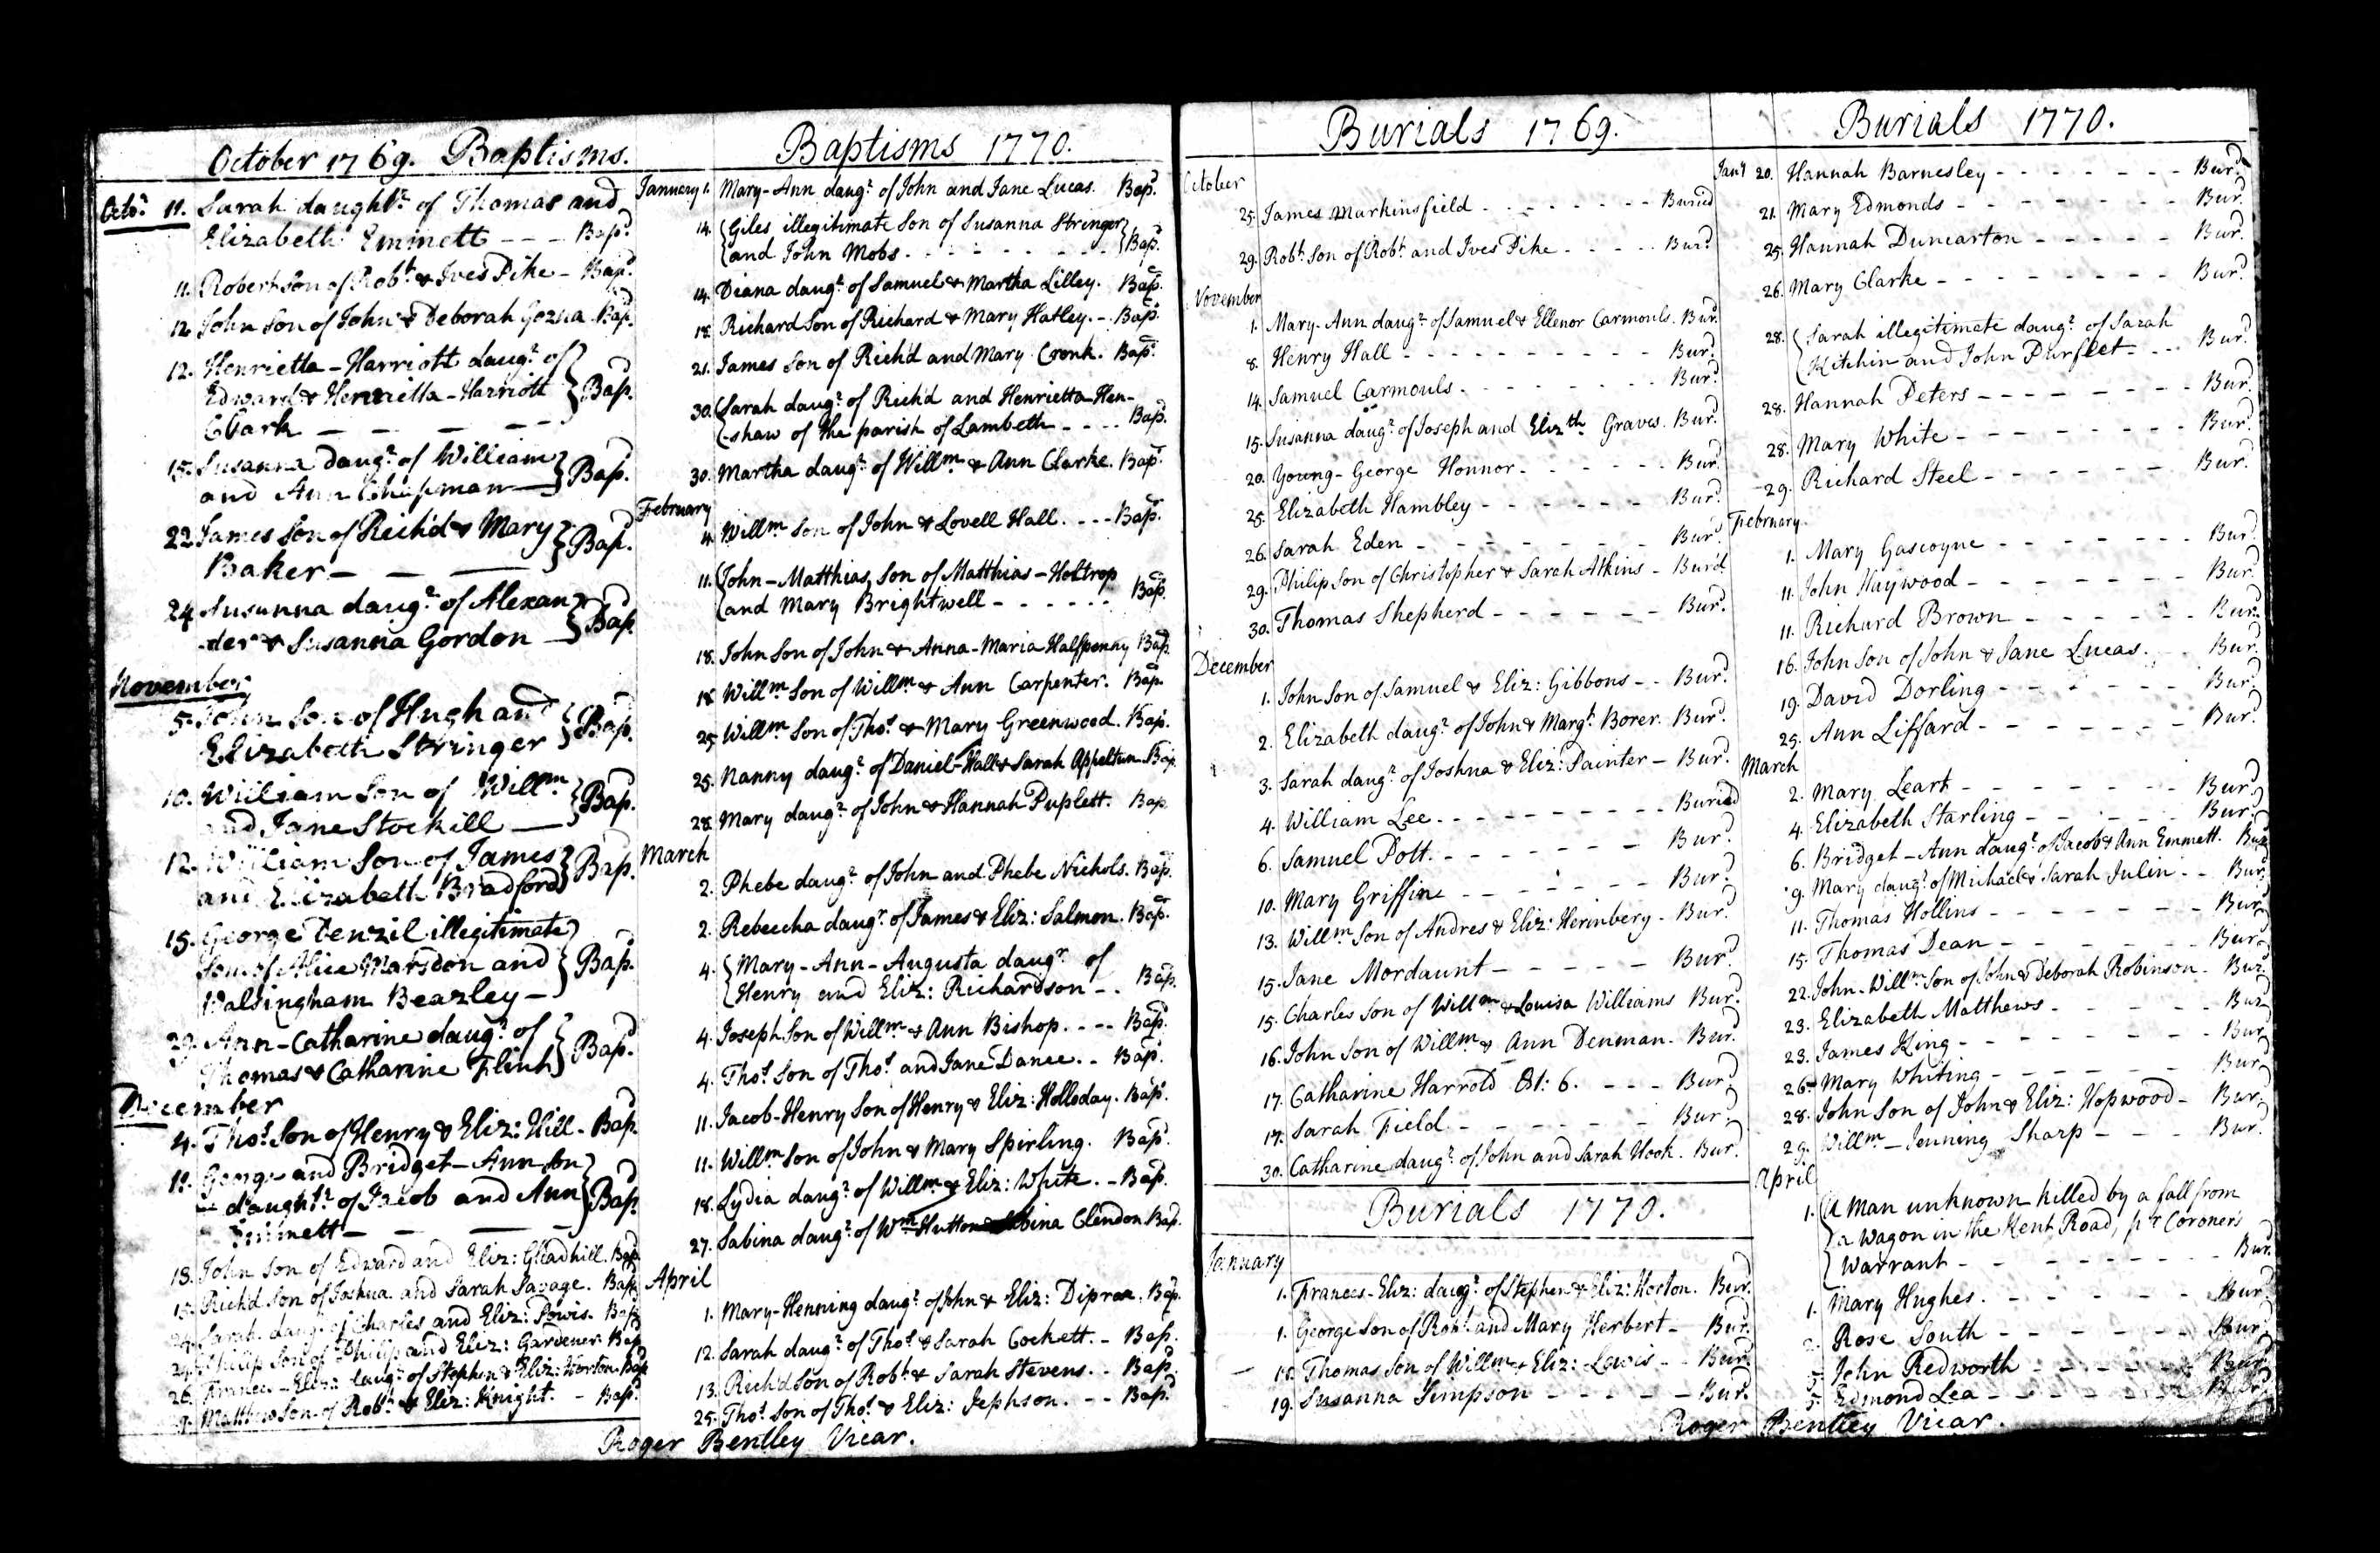 October 1769. Baptisms.
Octo.r 11. Sarah daught.r of Thomas and
Elizabeth Emmett - - - Bap.d
11. Robert Son of Rob.t & Ives Pike - Bap.d
12. John Son of John & Deborah Gozna. Bap.d
12. Henrietta-Harriott daug.r of
Edward & Henrietta-Harriott } Bap.d
Clark - - - -
15. Susanna daug.r of William
and Ann Chapman } Bap.d
22. James Son of Rich'd & Mary
Baker - - - } Bap.d
24. Susanna daug.r of Alexan
-der & Susanna Gordon } Bap.d
November
5. John Son of Hugh and
Elizabeth Stringer } Bap.d
10. William Son of Will.m
and Jane Stockill } Bap.d
12. William Son of James
and Elizabeth Bradford } Bap.d
15. George Denzil illegitimate
Son of Alice Marsdon and } Bap.d
Walsingham Beazley -
29. Ann-Catharine daug.r of
Thomas & Catharine Flint } Bap.d
December
4. Tho.s Son of Henry & Eliz: Hill - Bap.d
11. George and Bridget-Ann Son
daught.r of Jacob and Ann } Bap.d
Emmett - - -
13. John Son of Edward and Eliz: Gleadhill. Bap.d
15. Rich'd Son of Joshua and Sarah Savage. Bap.d
Sarah daug.r of Charles and Eliz: Powis. Bap.d
Philip Son of Philip and Eliz: Gardener Bap.d
26. Frances-Eliz: daug.r of Stephen & Eliz: Horton Bap.d
Matthew Son of Rob.t & Eliz: Knight. - Bap.d
Baptisms 1770.
January 1. Mary-Ann daug.r of John and Jane Lucas. Bap.d
14. { Giles illegitimate Son of Susanna Stringer
and John Mobs. - - - } Bap.d
14. Diana daug.r of Samuel & Martha Lilley. Bap.d
18. Richard Son of Richard & Mary Hatley. - Bap.d
21. James Son of Rich'd and Mary Cronk. Bap.d
30. { Sarah daug.r of Rich'd and Henrietta Hen-
-shaw of the parish of Lambeth - - - Bap.d
30. Martha daug.r of Will.m & Ann Clarke. Bap.d
February
4. Will.m Son of John & Lovell Hall. - - - Bap.d
11. { John-Matthias Son of Matthias-Holtrop
and Mary Brightwell - - - - - Bap.d
18. John Son of John & Anna-Maria Halfpenny Bap.d
18. Will.m Son of Will.m & Ann Carpenter. Bap.d
25. Will.m Son of Tho.s & Mary Greenwood. Bap.d
25. Nanny daug.r of Daniel-Hall & Sarah Appeltun Bap.d
28. Mary daug.r of John & Hannah Puplett. Bap.d
March
2. Phebe daug.r of John and Phebe Nichols. Bap.d
2. Rebeccha daug.r of James & Eliz: Salmon. Bap.d
4. { Mary-Ann-Augusta daug.r of
Henry and Eliz: Richardson - - Bap.d
4. Joseph Son of Will.m & Ann Bishop. - - - Bap.d
4. Tho.s Son of Tho.s and Jane Dance. - Bap.d
11. Jacob-Henry Son of Henry & Eliz: Holloday. Bap.d
11. Will.m Son of John & Mary Spirling. Bap.d
18. Lydia daug.r of Will.m & Eliz: White. - Bap.d
27. Sabina daug.r of W.m Hutton & Sabina Clendon Bap.d
April
1. Mary-Henning daug.r of John & Eliz: Diprea. Bap.d
12. Sarah daug.r of Tho.s & Sarah Cockett. - Bap.d
13. Rich'd Son of Rob.t & Sarah Stevens. - Bap.d
25. Tho.s Son of Tho.s & Eliz: Jephson. - - Bap.d
Roger Bentley Vicar.
Burials 1769.
October
25. James Markinsfield - - - - - Buried
29. Rob.t Son of Rob.t and Ives Pike - - - - Bur.d
November
1. Mary-Ann daug.r of Samuel & Ellenor Carmouls. Bur.d
8. Henry Hall - - - - - Bur.d
14. Samuel Carmouls. - - - - - Bur.d
15. Susanna daug.r of Joseph and Eliz.th Graves. Bur.d
20. Young-George Honnor. - - - - - Bur.d
25. Elizabeth Hambley - - - - - Bur.d
26. Sarah Eden - - - - - Bur.d
29. Philip Son of Christopher & Sarah Atkins - Bur'd
30. Thomas Shepherd - - - - - Bur.d
December
1. John Son of Samuel & Eliz: Gibbons - - Bur.d
2. Elizabeth daug.r of John & Marg.t Borer. Bur.d
3. Sarah daug.r of Joshua & Eliz: Painter - Bur.d
4. William Lee. - - - - - Buried
6. Samuel Pott. - - - - - Bur.d
10. Mary Griffine - - - - - Bur.d
13. Will.m Son of Andres & Eliz: Herinbery - Bur.d
15. Jane Mordaunt - - - - - Bur.d
15. Charles Son of Will.m & Louisa Williams Bur.d
16. John Son of Will.m & Ann Denman. Bur.d
17. Catharine Harrold Æt: 6. - - - Bur.d
17. Sarah Field. - - - - - Bur.d
30. Catharine daug.r of John and Sarah Hook. Bur.d
Burials 1770.
January
1. Frances-Eliz: daug.r of Stephen & Eliz: Horton. Bur.d
1. George Son of Rob.t and Mary Herbert - Bur.d
Thomas Son of Will.m & Eliz: Lewis - - Bur.d
19. Susanna Simpson - - - - - Bur.d
Burials 1770.
Jan.y 20. Hannah Barnesley - - - - - Bur.d
21. Mary Edmonds - - - - - Bur.d
25. Hannah Duncarton - - - - - Bur.d
26. Mary Clarke - - - - - Bur.d
28. { Sarah illegitimate daug.r of Sarah
Kitchin and John Purfleet - - - Bur.d
28. Hannah Peters - - - - - Bur.d
28. Mary White - - - - - Bur.d
29. Richard Steel - - - - - Bur.d
February
1. Mary Gascoyne - - - - - Bur.d
11. John Haywood - - - - - Bur.d
11. Richard Brown - - - - - Bur.d
16. John Son of John & Jane Lucas. - - Bur.d
19. David Dorling - - - - - Bur.d
25. Ann Liffard - - - - - Bur.d
March
2. Mary Leart - - - - - Bur.d
4. Elizabeth Starling - - - - - Bur.d
6. Bridget-Ann daug.r of Jacob & Ann Emmett. Bur.d
9. Mary daug.r of Michael & Sarah Julin - - Bur.d
11. Thomas Hollins - - - - - Bur.d
15. Thomas Dean - - - - - Bur.d
22. John-Will.m Son of John & Deborah Robinson. Bur.d
23. Elizabeth Matthews - - - - - Bur.d
23. James King - - - - - Bur.d
26. Mary Whiting - - - - - Bur.d
28. John Son of John & Eliz: Hopwood - Bur.d
29. Will.m-Jenning Sharp - - - Bur.d
April
1. { A Man unknown killed by a fall from
a Wagon in the Kent Road, p.r Coroner's
Warrant - - - - - Bur.d
1. Mary Hughes. - - - - - Bur.d
Rose South - - - - - Bur.d
5. John Redworth - - - - - Bur.d
5. Edmond Lea - - - - - Bur.d
Roger Bentley Vicar.